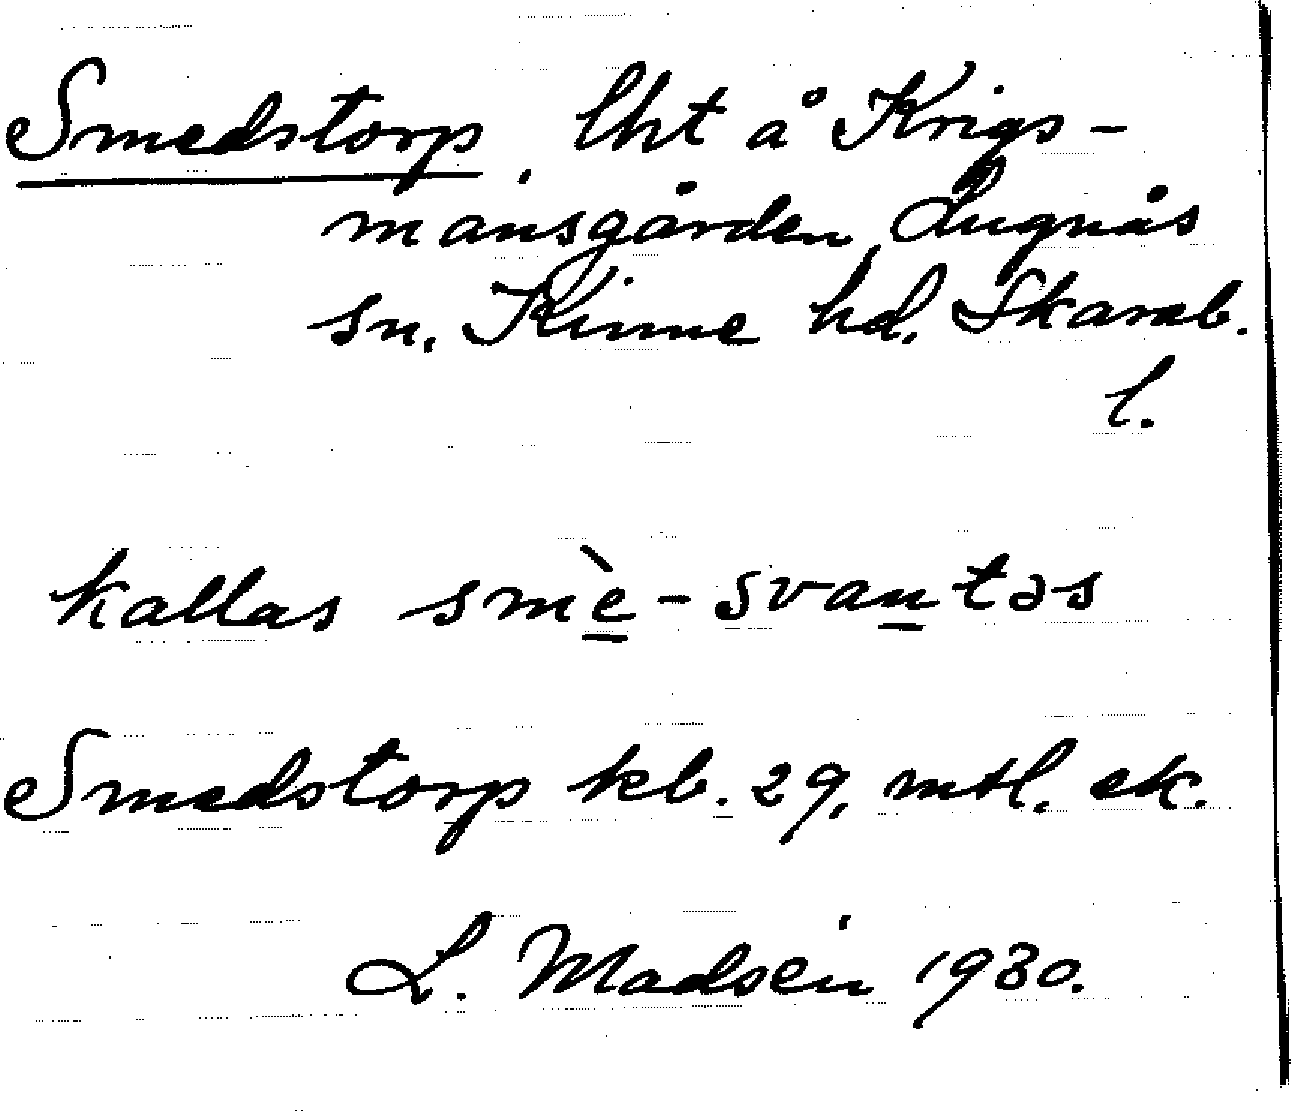 Smedstorp, lht å Krigs-
mansgården, Lugnås
sn. Kinne hd. Skarab.
l.
kallas smè-svantəs
Smedstorp kb. 29, mtl. ek.
L. Madsén 1930.